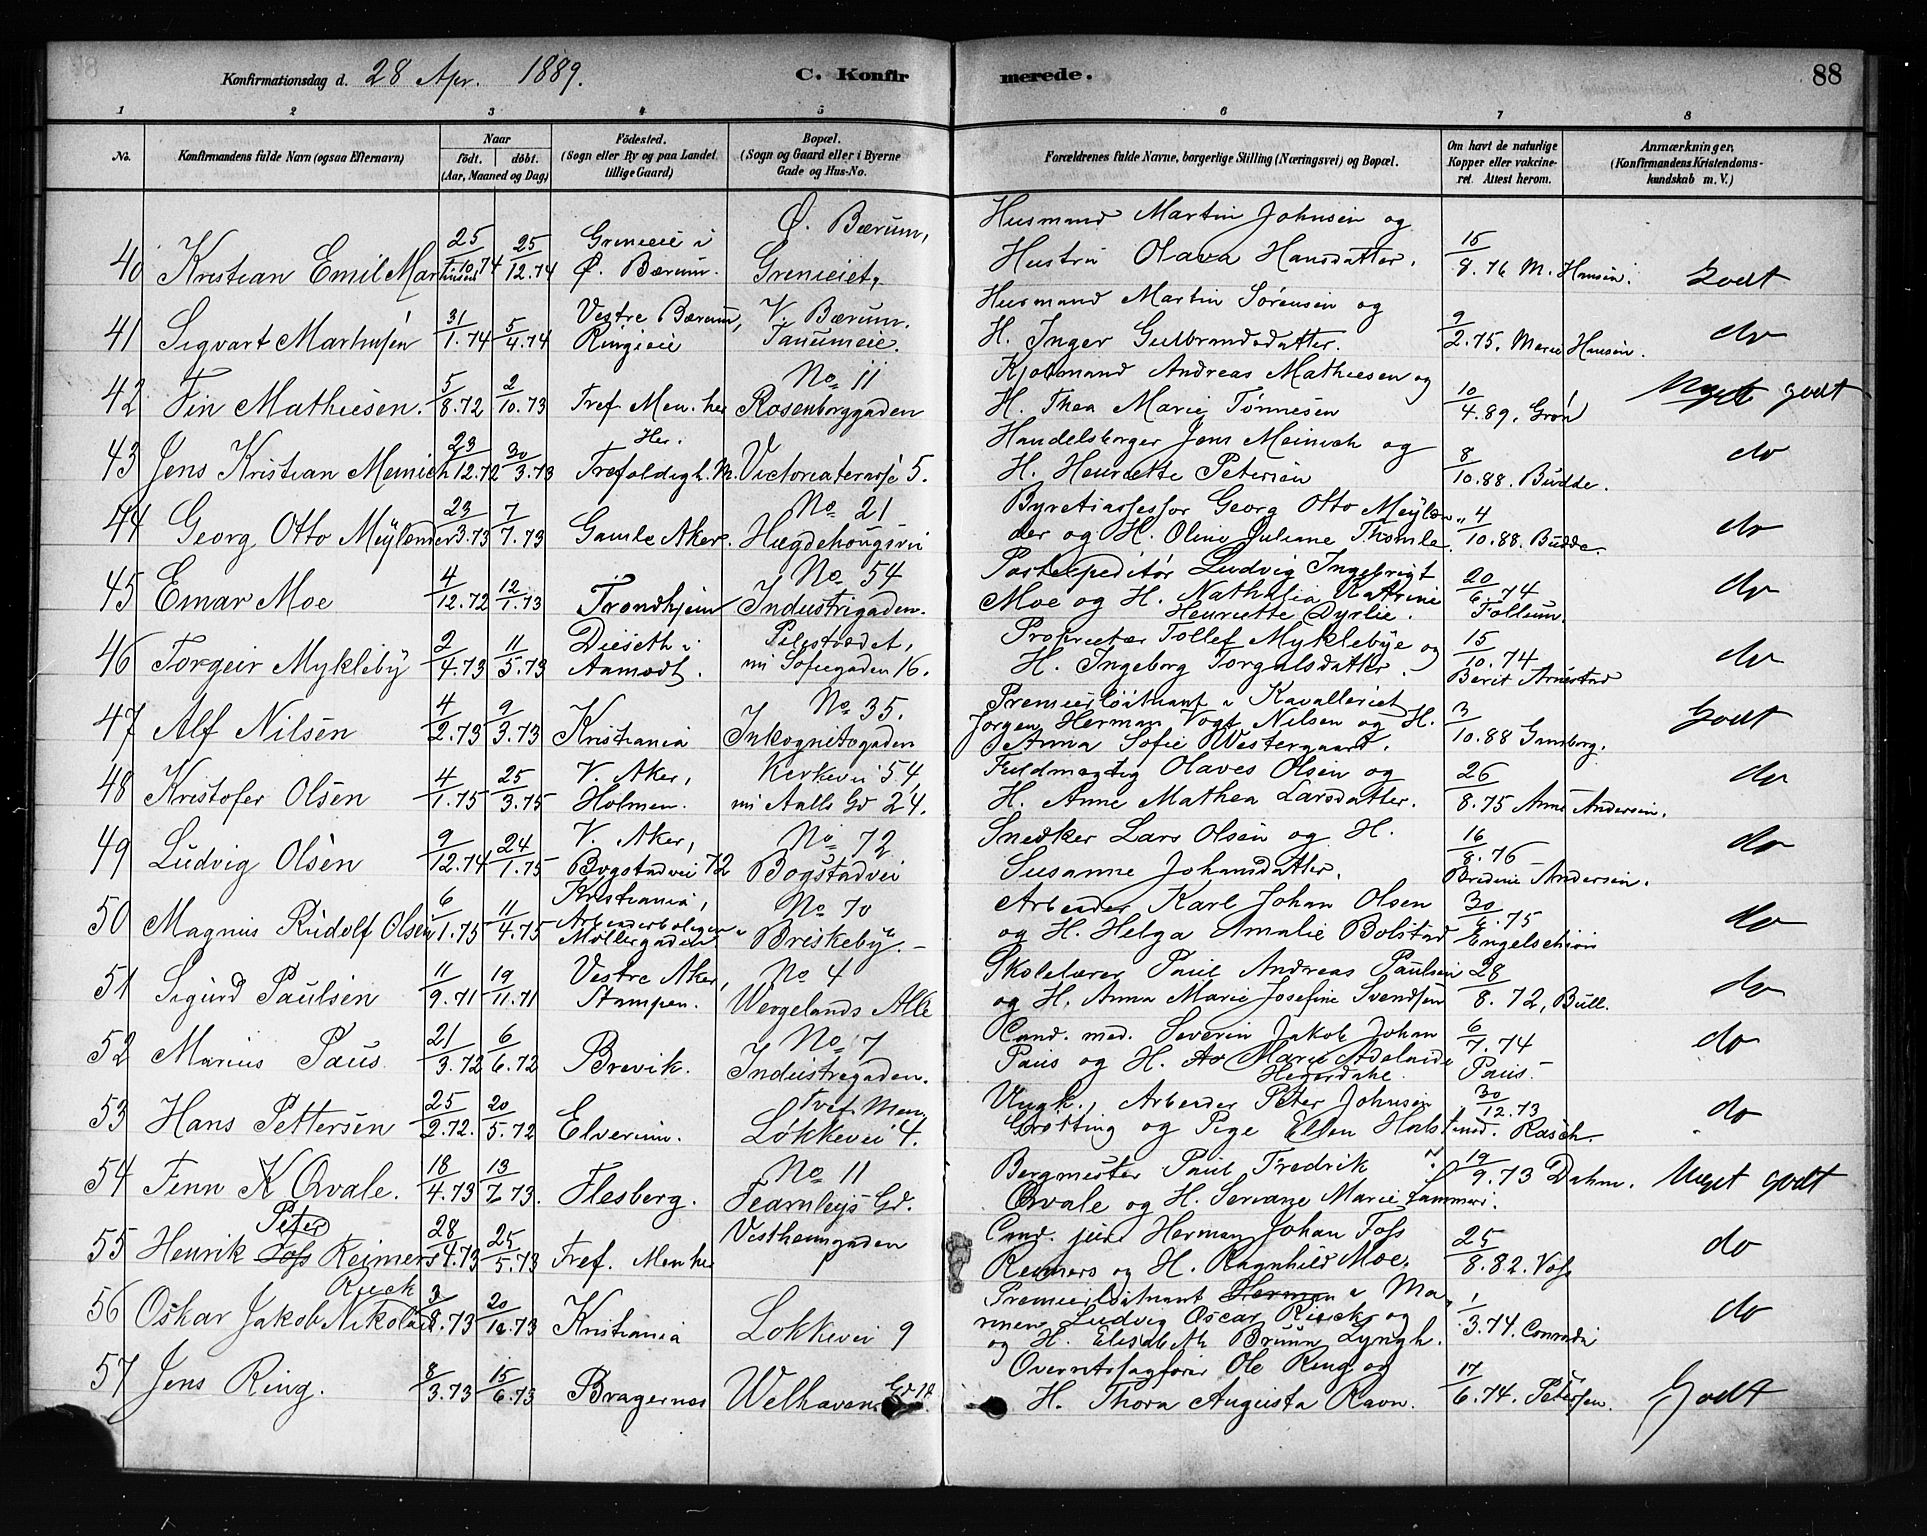 Konfirmationsdag d. 28 Apr. 1889.
C. Konfirmerede.
88
1 2 3 4 5 6 7 8
No. Konfirmandens fulde Navn (ogsaa Efternavn) Naar født. døbt. (Aar, Maaned og Dag) Födested. (Sogn eller By og paa Landet tillige Gaard) Bopæl. (Sogn og Gaard eller i Byerne Gade og Hus-No. Forældrenes fulde Navne, borgerlige Stilling (Næringsvei) og Bopæl. Om havt de naturlige Kopper eller vakcineret. Attest herom. Anmærkninger, (Konfirmandens Kristendomskundskab m. V.)
40 Kristian Emil Martinsen 25/10.74 25/12.74 Grinieie i Ø. Bærum. Ø. Bærum, Grinieiet, Husmand Martin Johnsen og Hustru Olava Hansdatter. 15/9.76 M. Hansen. Godt
41 Sigvart Martinsen 31/1.74 5/4.74 Vestre Bærum, Ringieie V. Bærum. Tanumeie. Husmand Martin Sørensen og H. Inger Gulbrandsdatter. 9/2.75. Marie Hansen. do
42 Fin Mathiesen. 5/8.72 2/10.73 Tref. Men. her No 11 Rosenborggaden Kjøbmand Andreas Mathiesen og H. Thea Marie Tønnesen 10/4.89. Grøn Meget godt
43 Jens Kristian Meinich 23/12.72 30/3.73 Her. Trefoldigh. M. Victoriaterasse 5. Handelsborger Jens Meinich og H. Henriette Petersen 8/10.88. Budde. do
44 Georg Otto Meÿlænder 23/3.73 7/7.73 Gamle Aker. No 21 Hægdehougsvei Byretsassessor Georg Otto Meÿlænder og H. Oline Juliane Thomle. 4/10.88. Budde. do
45 Einar Moe 4/12.72 12/1.73 Trondhjem No 54 Industrigaden. Postexpeditør Ludvig Ingebrigt Moe og H. Nathalia Katrine Henriette Dyrlie. 20/6.74 Follum. do
46 Torgeir Myklebÿ 2/4.73 11/5.73 Dieseth i Aamodt. Pilestrædet, nu Sofiegaden 16. Proprietær Tollef Myklebÿe og H. Ingeborg Torgalsdatter. 15/10.74 Berit Arnestad do
47 Alf Nilsen 4/2.73 9/3.73 Kristiania No 35. Inkognitogaden Premierløitnant i Kavalleriet Jørgen Herman Vogt Nilsen og H. Anna Sofie Westergaard. 3/10.88 Godt
48 Kristofer Olsen 4/1.75 25/3.75 V. Aker, Holmen. Kirkevei 54, nu Aalls Gd 24. Fuldmægtig Olaves Olsen og H. Anne Mathea Larsdatter. 26/8.75 Anne Andersen. do
49 Ludvig Olsen 9/12.74 24/1.75 V. Aker, Bogstadvei 72 No 72 Bogstadvei Snedker Lars Olsen og H. Susanne Johansdatter. 16/8.76 Andersen. do
50 Magnus Rudolf Olsen 6/1.75 11/4.75 Kristiania, Arbeiderboligen i Møllergaden No 70 Briskebÿ. Arbeider Karl Johan Olsen og H. Helga Amalie Bolstad 30/6.75 Engelschiøn do
51 Sigurd Paulsen 11/9.71 19/11.71 Vestre Aker, Stampen. No 4 Wergelands Alle Skolelærer Paul Andreas Paulsen og H. Anna Marie Josefine Svendsen 28/8.72, Bull. do
52 Marius Paus 21/3.72 6/6.72 Brevik. No 7 Industrigaden. Cand. med. Severin Jakob Johan Paus og H. Marie Adelaide 6/7.74 Paus. do
53 Hans Pettersen 25/2.72. 20/5.72 Elverum. Tref. Men. Løkkevei 4. Ungk., Arbeider Peter Johnsen Grøtting og Pige Ellen 30/12.73 Rasch. do
54 Finn K Qvale. 18/4.73 13/7.73. Flesberg. No 11 Fearnleÿs Gd. Bergmester Paul Fredrik Qvale og H. Seviane Marie Lammers. 19/9.73 Dahm. Meget godt
55 Henrik Peter Reimers 28/4.73 25/5.73 Tref. Menhe Vestheimgaden Cand. jur. Herman Johan Foss Reimers og H. Ragnhild Moe. 25/8.82. Voss do
56 Oskar Jakob Nikolai Rieck 3/8.73 20/10.73 Kristiania Løkkevei 9 Premierløitnant i Marinen Ludvig Oscar Rieck og og H. Elisabeth Bruun Lyngh. 1/3.74. Conradi do
57 Jens Ring. 8/3.73 15/6.73 Bragernes Welhavens Gd 12. Overretssagfører Ole Ring og H. Thora Augusta Ravn. 17/6.74. Petersen. Godt